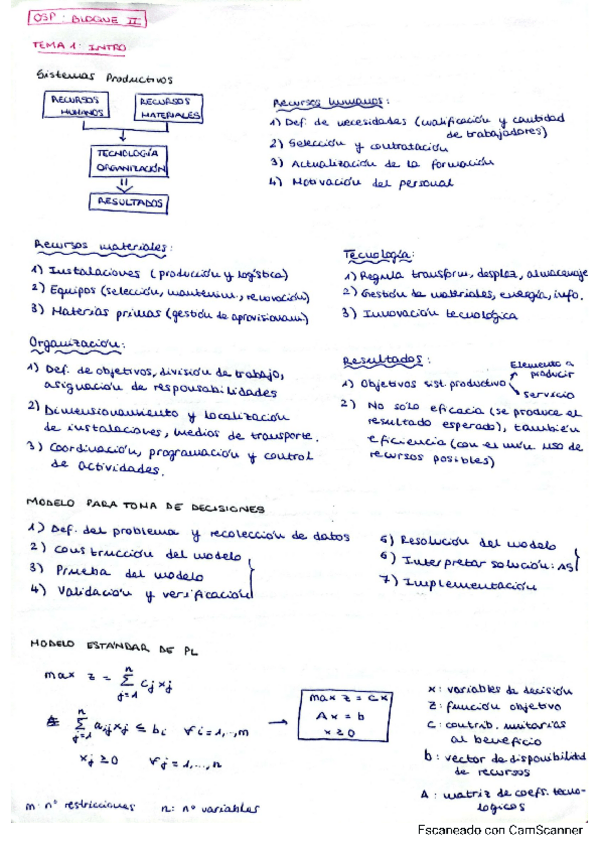 OSP: BLOQUE II
TEMA 1: INTRO
Sistemas Productivos
RECURSOS HUMANOS
RECURSOS MATERIALES
TECNOLOGÍA
ORGANIZACIÓN
RESULTADOS
Recursos humanos:
1) Def. de necesidades (cualificación y cantidad
de trabajadores)
2) Selección y contratación
3) Actualización de la formación
4) Motivación del personal
Recursos materiales:
1) Instalaciones (producción y logística)
2) Equipos (selección, mantenim., renovación)
3) Materias primas (gestión de aprovisionam)
Tecnología:
1) Regula transform, desplaz, almacenaje
2) Gestión de materiales, energía, info.
3) Innovación tecnológica
Organización:
1) Def. de objetivos, división de trabajo,
asignación de responsabilidades
2) Dimensionamiento y localización
de instalaciones, medios de transporte.
3) Coordinación, programación y control
de actividades.
Resultados:
1) Objetivos sist. productivo
Elemento a producir
servicio
2) No sólo eficacia (se produce el
resultado esperado), también
eficiencia (con el mín uso de
recursos posibles)
MODELO PARA TOMA DE DECISIONES
1) Def. del problema y recolección de datos
2) Construcción del modelo
3) Prueba del modelo
4) Validación y verificación
5) Resolución del modelo
6) Interpretar solución: AS
7) Implementación
MODELO ESTÁNDAR DE PL
max z = Σ cj xj
n
j=1
Σ aij xj ≤ bi ∀ i=1,..,m
n
j=1
xj ≥ 0 ∀ j=1,...,n
→
max z = cx
Ax = b
x ≥ 0
x: variables de decisión
z: función objetivo
c: contrib. unitarias
al beneficio
b: vector de disponibilidad
de recursos
A: matriz de coefs. tecno-
lógicos
m: nº restricciones n: nº variables
Escaneado con CamScanner